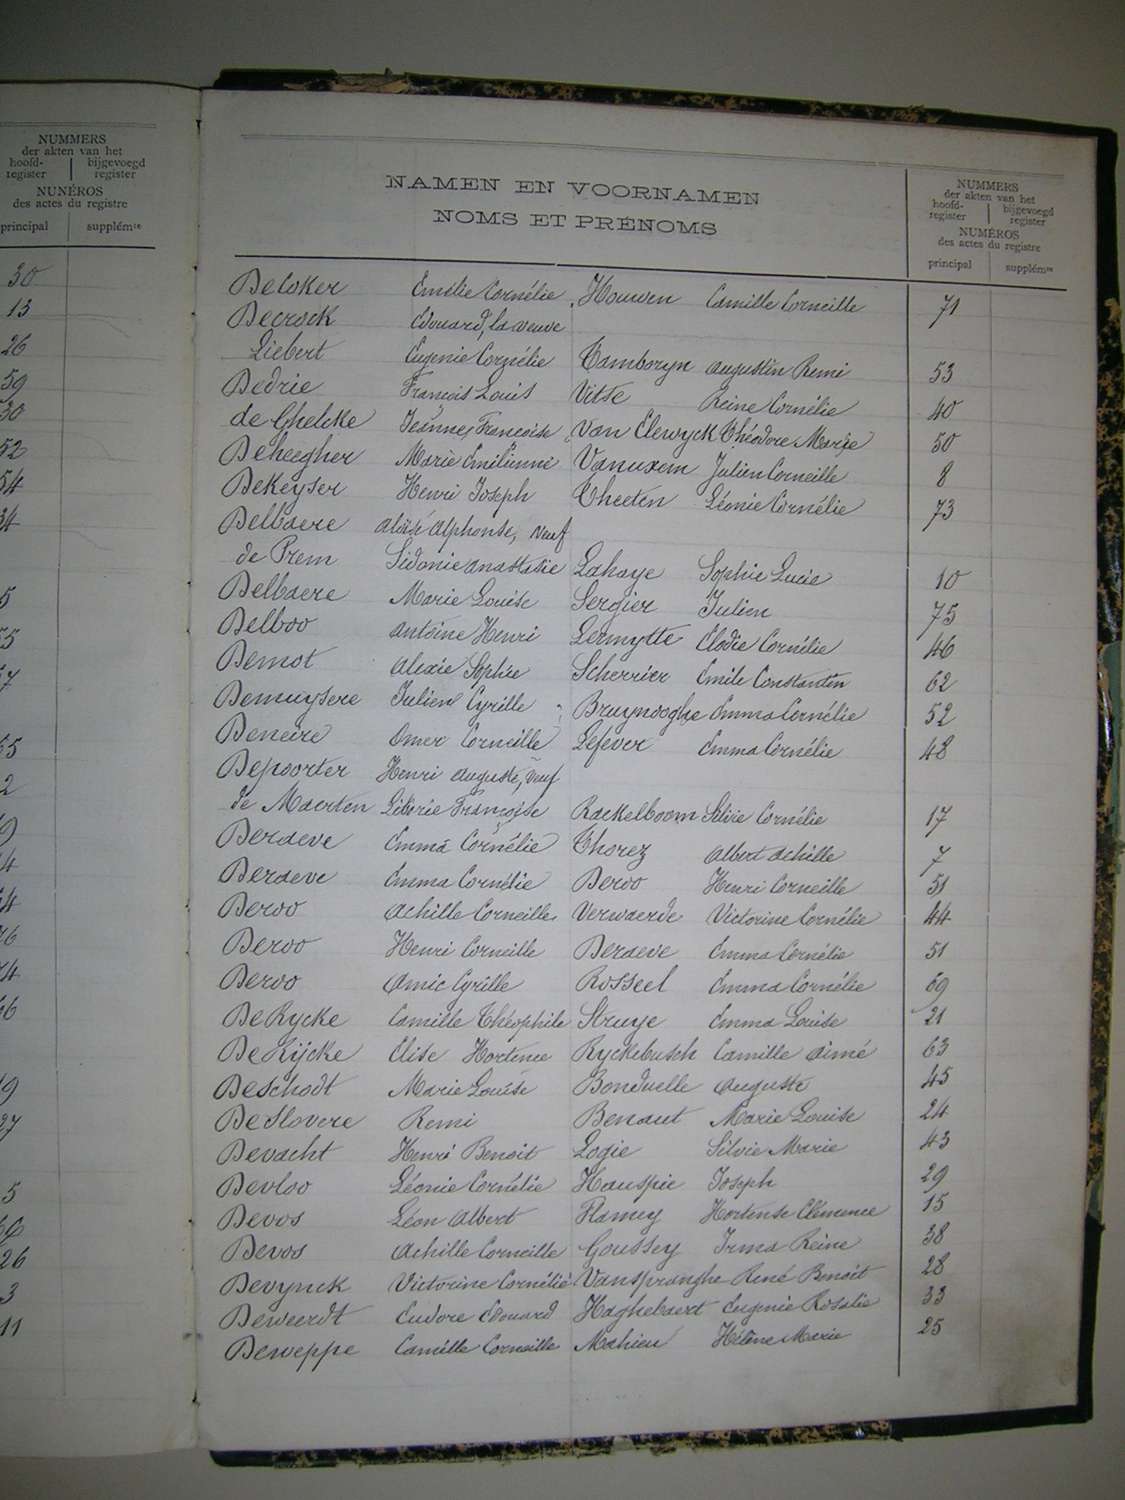 NUMMERS
der akten van het
hoofd- register | bijgevoegd register
NUNÉROS
des actes du registre
principal | supplém^re
30
13
26
59
30
52
54
34
5
2
4
26
3
11
NAMEN EN VOORNAMEN
NOMS ET PRÉNOMS
NUMMERS
der akten van het
hoofd- register | bijgevoegd register
NUMÉROS
des actes du registre
principal | supplém^re
DeCoker Emélie Cornélie Houwen Camille Corneille 71
Decrock Edouard, la veuve
Liebert Eugenie Cornélie Tamboryn Augustin Remi 53
Dedrie François Louis Vitse Reine Cornélie 40
de Ghelcke Jeanne Françoise Van Elewyck Théodore Marie 50
Deheegher Marie Emilienne Vanuxem Julien Corneille 8
DeKeyser Henri Joseph Theeten Léonie Cornélie 73
Delbaere Aloïse Alphonse, veuf
de Prem Sidonie Anastasie Lahaye Sophie Lucie 10
Delbaere Marie Louise Sergier Julien 75
Delboo Antoine Henri Lermytte Elodie Cornélie 46
Demot Alexie Sophie Scherrier Emile Constantin 62
Demuysere Julien Cyrille Bruynooghe Emma Cornélie 52
Deneire Omer Corneille Lefever Emma Cornélie 48
Depoorter Henri Auguste, veuf
de Maerten Libérie Françoise Raekelboom Silvie Cornélie 17
Deraeve Emma Cornélie Thorez Albert Achille 7
Deraeve Emma Cornélie Deroo Henri Corneille 51
Deroo Achille Corneille Verwaerde Victorine Cornélie 44
Deroo Henri Corneille Deraeve Emma Cornélie 51
Deroo Amic Cyrille Rosseel Emma Cornélie 69
DeRycke Camille Théophile Struye Emma Louise 21
DeRijcke Elise Hortence Ryckebusch Camille Aimé 63
Deschodt Marie Louise Bonduelle Auguste 45
DeSlovere Remi Benaut Marie Louise 24
Devacht Henri Benoit Logie Silvie Marie 43
Devloo Léonie Cornélie Hauspie Joseph 29
Devos Léon Albert Flamey Hortense Clémence 15
Devos Achille Corneille Goussey Irma Reine 38
Devynck Victorine Cornélie Vanspranghe René Benoit 28
Deweerdt Eudore Edouard Haghebaert Eugenie Rosalie 33
Deweppe Camille Corneille Mahieu Hélène Marie 25